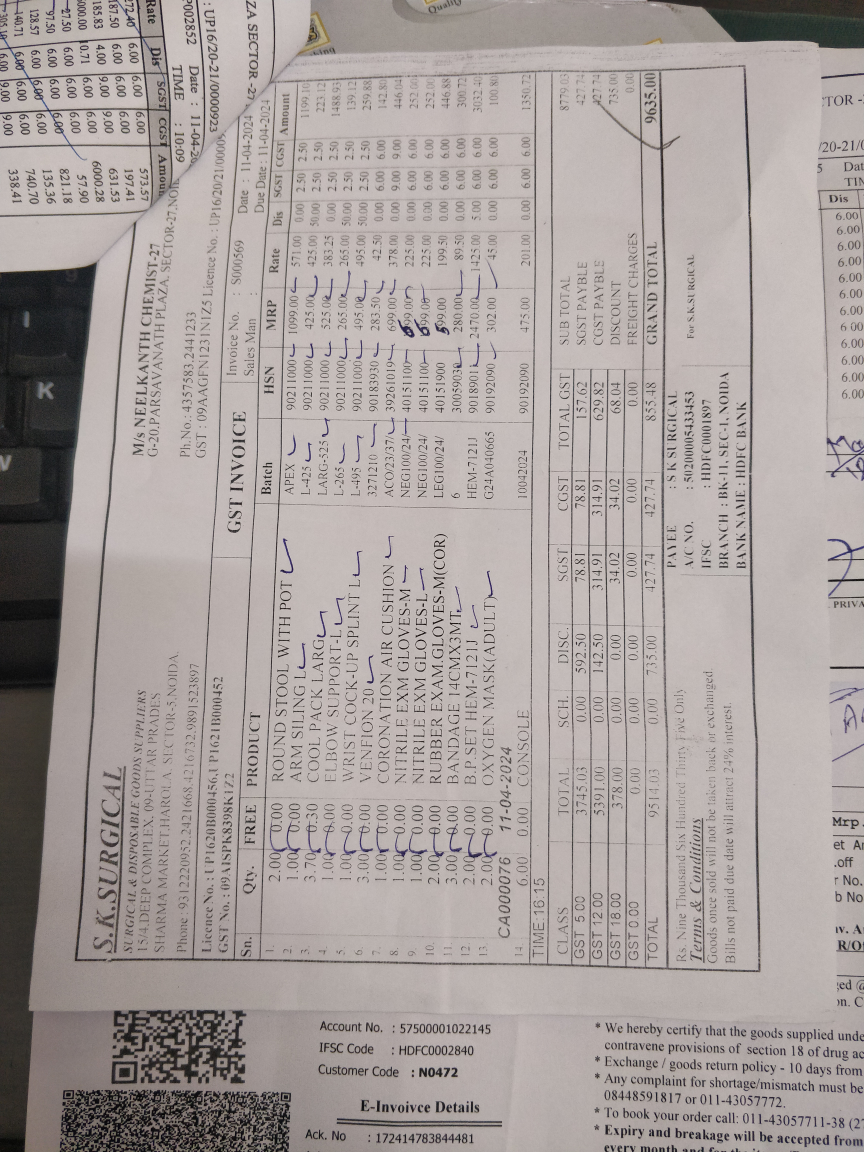 S.K.SURGICAL
SURGICAL & DISPOSABLE GOODS SUPPLIERS
15/4,DEEP COMPLEX, 09-UTTAR PRADES
SHARMA MARKET,HAROLA, SECTOR-5,NOIDA,
Phone : 9312220952,2421668,4216732,9891523897
Licence No. : UP1620B000456,UP1621B000452
GST No. : 09AISPK8398K1Z2
M/s NEELKANTH CHEMIST-27
G-20,PARSAVANATH PLAZA, SECTOR-27,NOIDA
Ph.No.: 4357583,2441233
GST : 09AAGFN1231N1Z5 Licence No. : UP16/20/21/0000
GST INVOICE
Invoice No. : S000569 Date : 11-04-2024
Sales Man : Due Date : 11-04-2024
Sn. Qty. FREE PRODUCT Batch HSN MRP Rate Dis SGST CGST Amount
1. 2.00 0.00 ROUND STOOL WITH POT APEX 90211000 1099.00 571.00 0.00 2.50 2.50 1199.10
2. 1.00 0.00 ARM SILING L L-425 90211000 425.00 425.00 50.00 2.50 2.50 223.12
3. 3.70 0.30 COOL PACK LARG LARG-525 90211000 525.00 383.25 0.00 2.50 2.50 1488.93
4. 1.00 0.00 ELBOW SUPPORT-L L-265 90211000 265.00 265.00 50.00 2.50 2.50 139.12
5. 1.00 0.00 WRIST COCK-UP SPLINT L L-495 90211000 495.00 495.00 50.00 2.50 2.50 259.88
6. 3.00 0.00 VENFION 20 3271210 90183930 283.50 42.50 0.00 6.00 6.00 142.80
7. 1.00 0.00 CORONATION AIR CUSHION ACO/23/37/ 39261019 699.00 378.00 0.00 9.00 9.00 446.04
8. 1.00 0.00 NITRILE EXM GLOVES-M NEG100/24/ 40151100 699.00 225.00 0.00 6.00 6.00 252.00
9. 1.00 0.00 NITRILE EXM GLOVES-L NEG100/24/ 40151100 699.00 225.00 0.00 6.00 6.00 252.00
10. 2.00 0.00 RUBBER EXAM.GLOVES-M(COR) LEG100/24/ 40151900 599.00 199.50 0.00 6.00 6.00 446.88
11. 3.00 0.00 BANDAGE 14CMX3MT. 6 30059030 280.00 89.50 0.00 6.00 6.00 300.72
12. 2.00 0.00 B.P.SET HEM-7121J HEM-7121J 90189011 2470.00 1425.00 5.00 6.00 6.00 3032.40
13. 2.00 0.00 OXYGEN MASK(ADULT) G24A040665 90192090 302.00 45.00 0.00 6.00 6.00 100.80
CA000076 11-04-2024
14. 6.00 0.00 CONSOLE 10042024 90192090 475.00 201.00 0.00 6.00 6.00 1350.72
TIME:16:15
CLASS TOTAL SCH. DISC. SGST CGST TOTAL GST
GST 5.00 3745.03 0.00 592.50 78.81 78.81 157.62
GST 12.00 5391.00 0.00 142.50 314.91 314.91 629.82
GST 18.00 378.00 0.00 0.00 34.02 34.02 68.04
GST 0.00 0.00 0.00 0.00 0.00 0.00
TOTAL 9514.03 0.00 735.00 427.74 427.74 855.48
SUB TOTAL 8779.03
SGST PAYBLE 427.74
CGST PAYBLE 427.74
DISCOUNT 735.00
FREIGHT CHARGES 0.00
GRAND TOTAL 9635.00
Rs. Nine Thousand Six Hundred Thirty Five Only
Terms & Conditions
Goods once sold will not be taken back or exchanged
Bills not paid due date will attract 24% interest.
PAYEE : S K SURGICAL
A/C NO. : 50200005433453
IFSC : HDFC0001897
BRANCH : BK-11, SEC-1, NOIDA
BANK NAME : HDFC BANK
For S.K.SURGICAL
Account No. : 57500001022145
IFSC Code : HDFC0002840
Customer Code : N0472
E-Invoivce Details
Ack. No : 172414783844481
* We hereby certify that the goods supplied unde
contravene provisions of section 18 of drug ac
* Exchange / goods return policy - 10 days from
* Any complaint for shortage/mismatch must be
08448591817 or 011-43057772.
* To book your order call: 011-43057711-38 (27
* Expiry and breakage will be accepted from
ZA SECTOR-27
: UP16/20-21/00000923
P002852 Date : 11-04-2
TIME : 10:09
Rate Dis SGST CGST Amount
272.40 6.00 6.00 6.00 573.57
187.50 6.00 6.00 6.00 197.41
185.83 4.00 9.00 9.00 631.53
6000.28
57.90
821.18
135.36
740.70
338.41
Quality
K